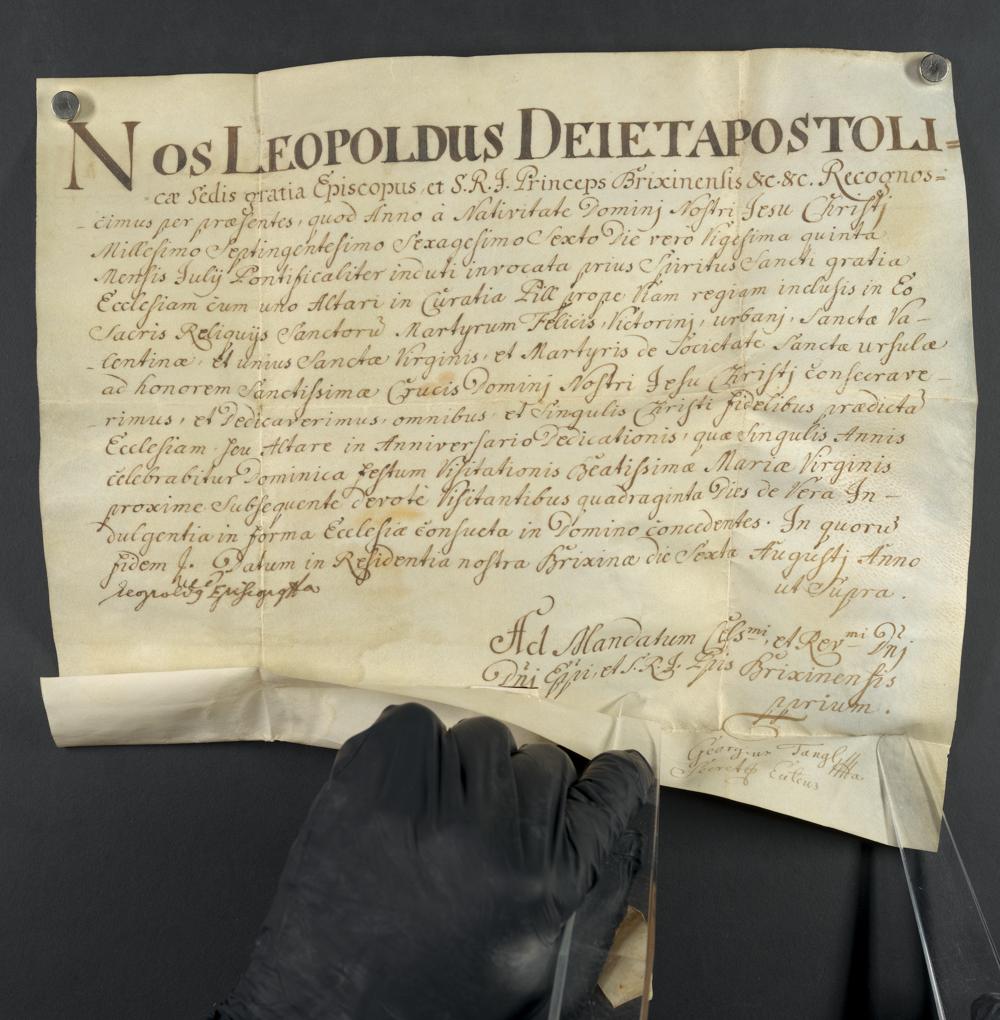 NOS LEOPOLDUS DEI ET APOSTOLI=
cæ Sedis gratia Episcopus, et S. R. J. Princeps Brixinensis &c. &c. Recognos=
cimus per præsentes, quod Anno à Nativitate Dominj Nostri Jesu Christj
Millesimo Septingentesimo Sexagesimo Sexto Die vero Vigesima quinta
Mensis Julij Pontificaliter induti invocata prius Spiritus Sancti gratia
Ecclesiam cum uno Altari in Curatia Pill prope Viam regiam inclusis in Eo
Sacris Reliquijs Sanctorū Martyrum Felicis, Victorinj, urbanj, Sanctæ Va-
-centinæ, et unius Sanctæ Virginis, et Martyris de Societate Sanctæ ursulæ
ad honorem Sanctissimæ Crucis Dominj Nostri Jesu Christj Consecrave-
-rimus, et Dedicaverimus, omnibus, et Singulis Christi fidelibus prædictā
Ecclesiam, seu Altare in Anniversario Dedicationis, quæ Singulis Annis
celebrabitur Dominica festum Visitationis Beatissimæ Mariæ Virginis
proxime Subsequente devotè Visitantibus quadraginta Dies de Vera In-
dulgentia in forma Ecclesiæ Consueta in Domino concedentes. In quorū
fidem Datum in Residentia nostra Brixinæ die Sexta Augustj Anno
ut Supra.
Leopoldg Episcopg
Ad Mandatum Celsmi, et Revmi Dnj
Dnj Eppi, et S. R. J. Epis Brixinensis
pprium.
Georgius Tangl